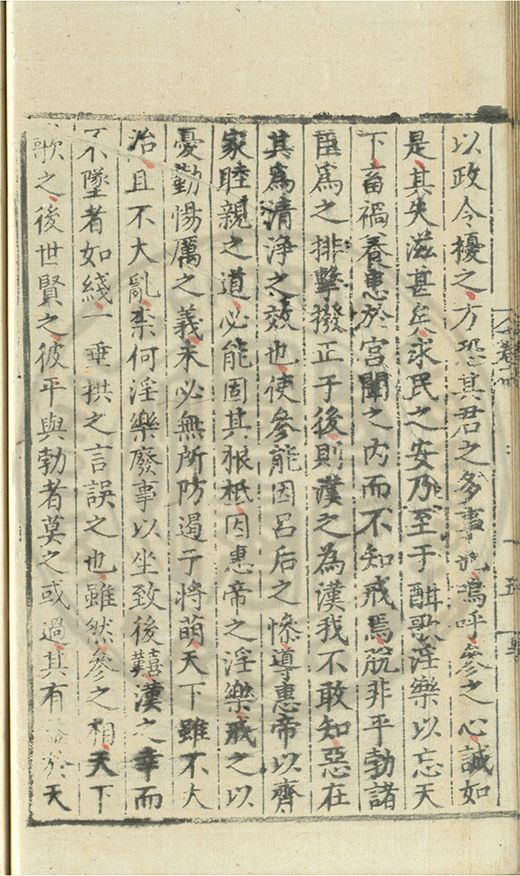 以政令擾之方恐其君之多事也嗚呼參之心誠如
是其失滋甚矣求民之安乃至于酣歌淫樂以忘天
下畜禍養患於宮闈之内而不知戒焉脫非平勃諸
臣為之排擊撥正于後則漢之為漢我不敢知惡在
其爲清浄之效也使參能因呂后之慘導惠帝以齊
家睦親之道必能固其根柢因惠帝之淫樂戒之以
憂勤惕厲之義未必無所防遏于將萌天下雖不大
治且不大亂柰何淫樂廢事以坐致後囏漢之幸而
不墜者如綫一垂拱之言誤之也雖然參之相天下
歌之後世賢之彼平與勃者莫之或過其有 於天